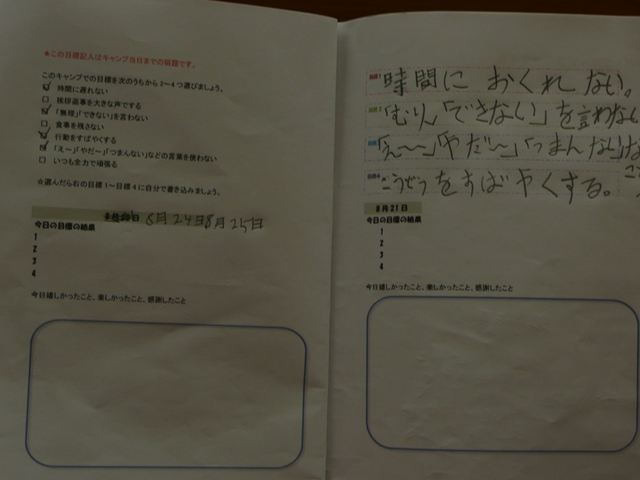 ★この目標記入はキャンプ当日までの宿題です。
このキャンプでの目標を次のうちから2〜4つ選びましょう。
☑ 時間に遅れない
□ 挨拶返事を大きな声でする
☑ 「無理」「できない」を言わない
□ 食事を残さない
☑ 行動をすばやくする
☑ 「え〜」「やだ〜」「つまんない」などの言葉を使わない
□ いつも全力で頑張る
★選んだら右の目標1〜目標4に自分で書き込みましょう。
8月24日8月25日
今日の目標の結果
1
2
3
4
今日嬉しかったこと、楽しかったこと、感謝したこと
目標1 時間におくれない。
目標2 「むりん「できない」を言わない
目標3 「え〜〜」「やだ〜」「つまんない」
目標4 こうどうをすばやくする。
8月21日
今日の目標の結果
1
2
3
4
今日嬉しかったこと、楽しかったこと、感謝したこと